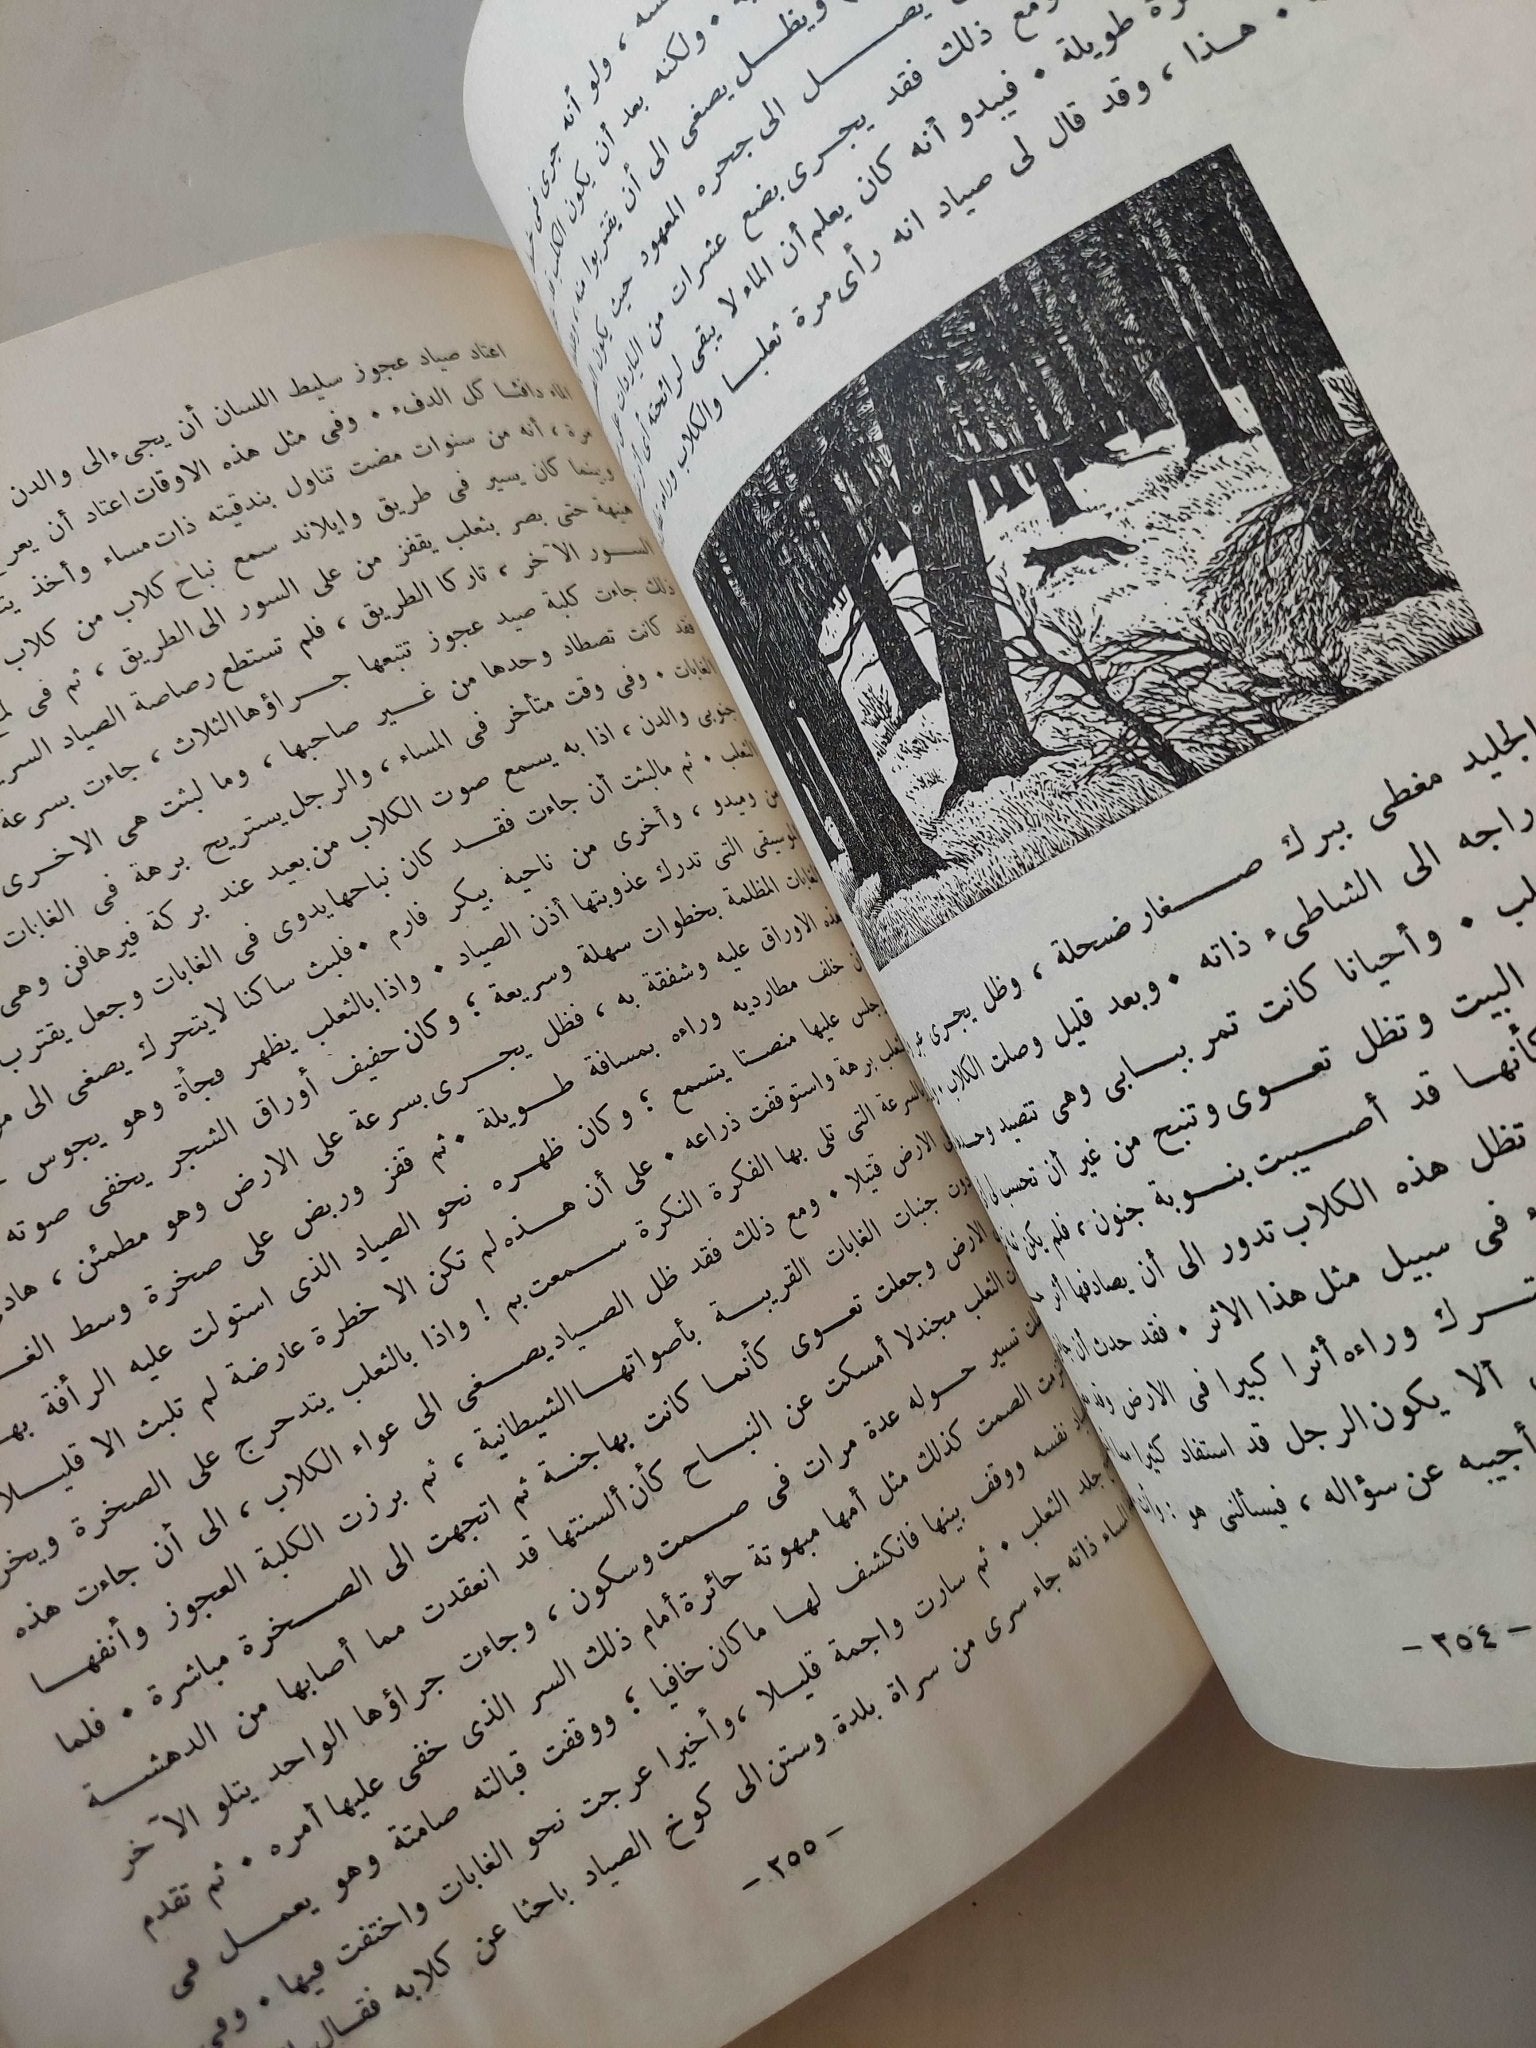 سه ، ولو أنه جرى فى
ولكنه بعد أن يكون
ويظل يصغى الى أن يقتربوا منه
يصل الى جحره المعهود حيث يكون
ومع ذلك فقد يجرى بضع عشرات من الياردات على
طويلة . فيبدو أنه كان يعلم أن الماء لا يبقى لرائحته أى أثر
. هذا ، وقد قال لى صياد انه رأى مرة ثعلبا والكلاب وراءه
الجليد مغطى ببرك صغار ضحلة ، وظل يجرى
أدراجه الى الشاطىء ذاته . وبعد قليل وصلت الكلاب
. وأحيانا كانت تمر ببابى وهى تتصيد وحدها
البيت وتظل تعوى وتنبح من غير أن تحسب لى
كأنها قد أصيبت بنوبة جنون ، فلم يكن
تظل هذه الكلاب تدور الى أن يصادفها أثر
فى سبيل مثل هذا الاثر . فقد حدث أن
ترك وراءه أثرا كبيرا فى الارض
ألا يكون الرجل قد استفاد كثيرا
أجيبه عن سؤاله ، فيسألنى هو :
- ٢٥٤ -
اعتاد صياد عجوز سليط اللسان أن يجىء الى والدن
الماء دافئا كل الدفء . وفى مثل هذه الاوقات اعتاد أن
مرة ، أنه من سنوات مضت تناول بندقيته ذات مساء وأخذ
وبينما كان يسير فى طريق وايلاند سمع نباح كلاب من كلاب
هنيهة حتى بصر بثعلب يقفز من على السور الى الطريق ، ثم فى
السور الآخر ، تاركا الطريق ، فلم تستطع رصاصة الصياد
ذلك جاءت كلبة صيد عجوز تتبعها جراؤها الثلاث ، جاءت بسرعة
فقد كانت تصطاد وحدها من غير صاحبها ، وما لبثت هى الاخرى
الغابات . وفى وقت متأخر فى المساء ، والرجل يستريح برهة فى الغابات
جنوبى والدن ، اذا به يسمع صوت الكلاب من بعيد عند بركة فيرهافن وهى
الثعلب . ثم مالبثت أن جاءت فقد كان نباحها يدوى فى الغابات وجعل يقترب
من وميدو ، وأخرى من ناحية بيكر فارم . فلبث ساكنا لا يتحرك يصغى الى
الموسيقى التى تدرك عذوبتها أذن الصياد . واذا بالثعلب يظهر فجأة وهو يجوس
الغابات المظلمة بخطوات سهلة وسريعة ؛ وكان حفيف أوراق الشجر يخفى صوته
هذه الاوراق عليه وشفقة به ، فظل يجرى بسرعة على الارض وهو مطمئن ،
خلف مطارديه وراءه بمسافة طويلة . ثم قفز وربض على صخرة وسط
وجلس عليها منصتا يتسمع ؛ وكان ظهره نحو الصياد الذى استولت عليه الرأفة
برهة واستوقفت ذراعه . على أن هذه لم تكن الا خطرة عارضة لم تلبث الا قليلا
السرعة التى تلى بها الفكرة الفكرة سمعت بم ! واذا بالثعلب يتدحرج على الصخرة ويخر
الارض قتيلا . ومع ذلك فقد ظل الصياد يصغى الى عواء الكلاب ، الى أن جاءت هذه
جنبات الغابات القريبة بأصواتها الشيطانية ، ثم برزت الكلبة العجوز وأنفها
الارض وجعلت تعوى كأنما كانت بها جنة ثم اتجهت الى الصخرة مباشرة . فلما
الثعلب مجندلا أمسكت عن النباح كأن ألسنتها قد انعقدت مما أصابها من الدهشة
تسير حوله عدة مرات فى صمت وسكون ، وجاءت جراؤها الواحد يتلو الآخر
الصمت كذلك مثل أمها مبهوتة حائرة أمام ذلك السر الذى خفى عليها أمره . ثم تقدم
نفسه ووقف بينها فانكشف لها ما كان خافيا ؛ ووقفت قبالته صامتة وهو يعمل فى
جلد الثعلب . ثم سارت واجمة قليلا ، وأخيرا عرجت نحو الغابات واختفت فيها .
المساء ذاته جاء سرى من سراة بلدة وستن الى كوخ الصياد باحثا عن كلابه فقال
- ٢٥٥ -